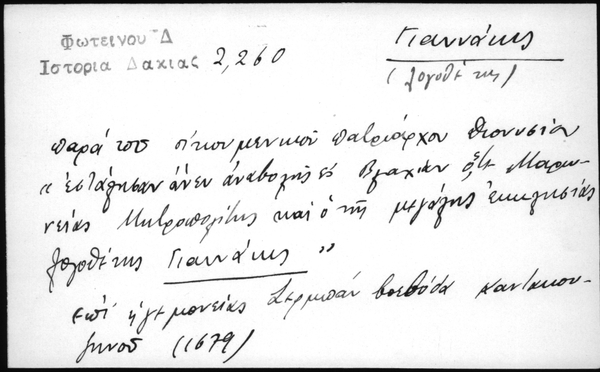 Φωτεινου Δ
Ιστορια Δακιας 2,260
Γιαννάκης
(λογοθέτης)
παρά του οικουμενικού πατριάρχου Διονυσίου
"εστάλησαν άνευ αναβολής εις Βλαχίαν ό,τε Μαρω-
νείας Μητροπολίτης και ο της μεγάλης εκκλησίας
λογοθέτης Γιαννάκης"
επί ηγεμονείας Σερμπάν βοεβόδα Καντακου-
ζηνού (1679)